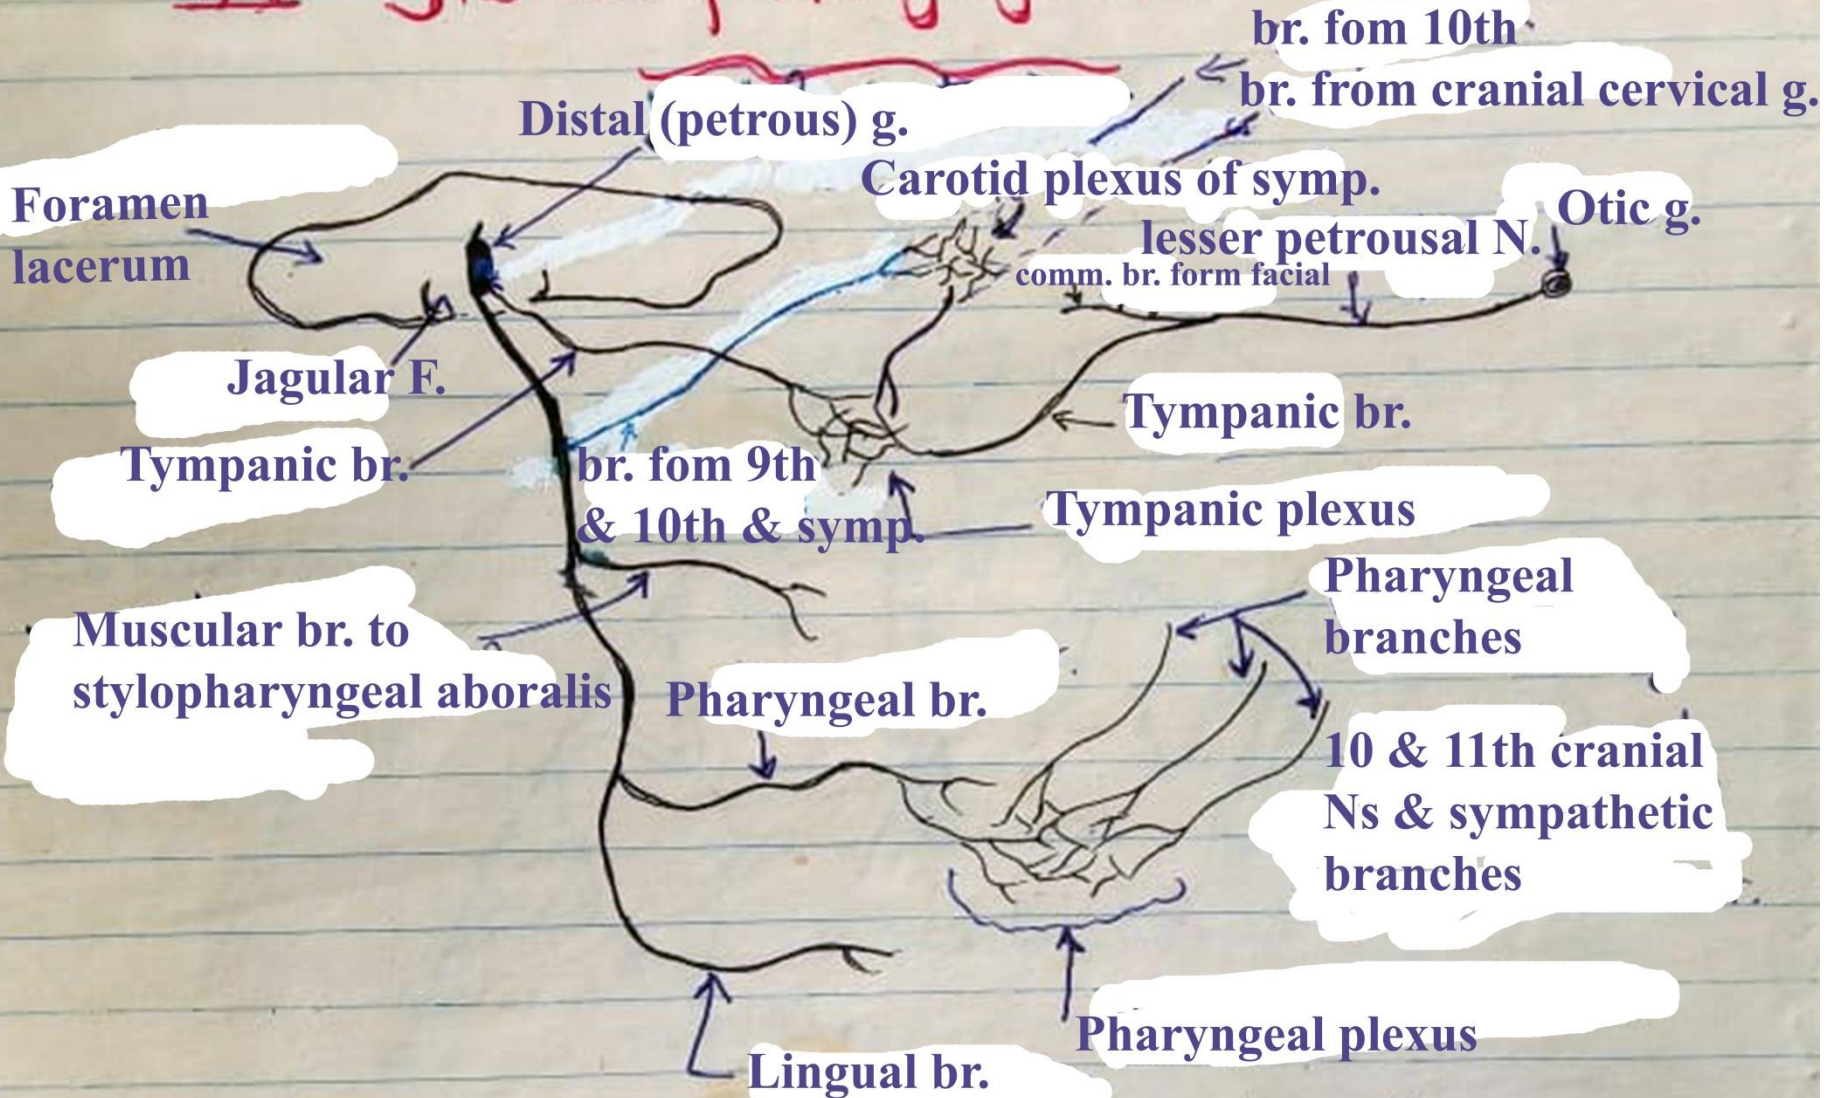 br. fom 10th
br. from cranial cervical g.
Distal (petrous) g.
Carotid plexus of symp.
Foramen
lacerum
Otic g.
lesser petrousal N.
comm. br. form facial
Jagular F.
Tympanic br.
Tympanic br.
br. fom 9th
& 10th & symp.
Tympanic plexus
Pharyngeal
branches
Muscular br. to
stylopharyngeal aboralis
Pharyngeal br.
10 & 11th cranial
Ns & sympathetic
branches
Pharyngeal plexus
Lingual br.